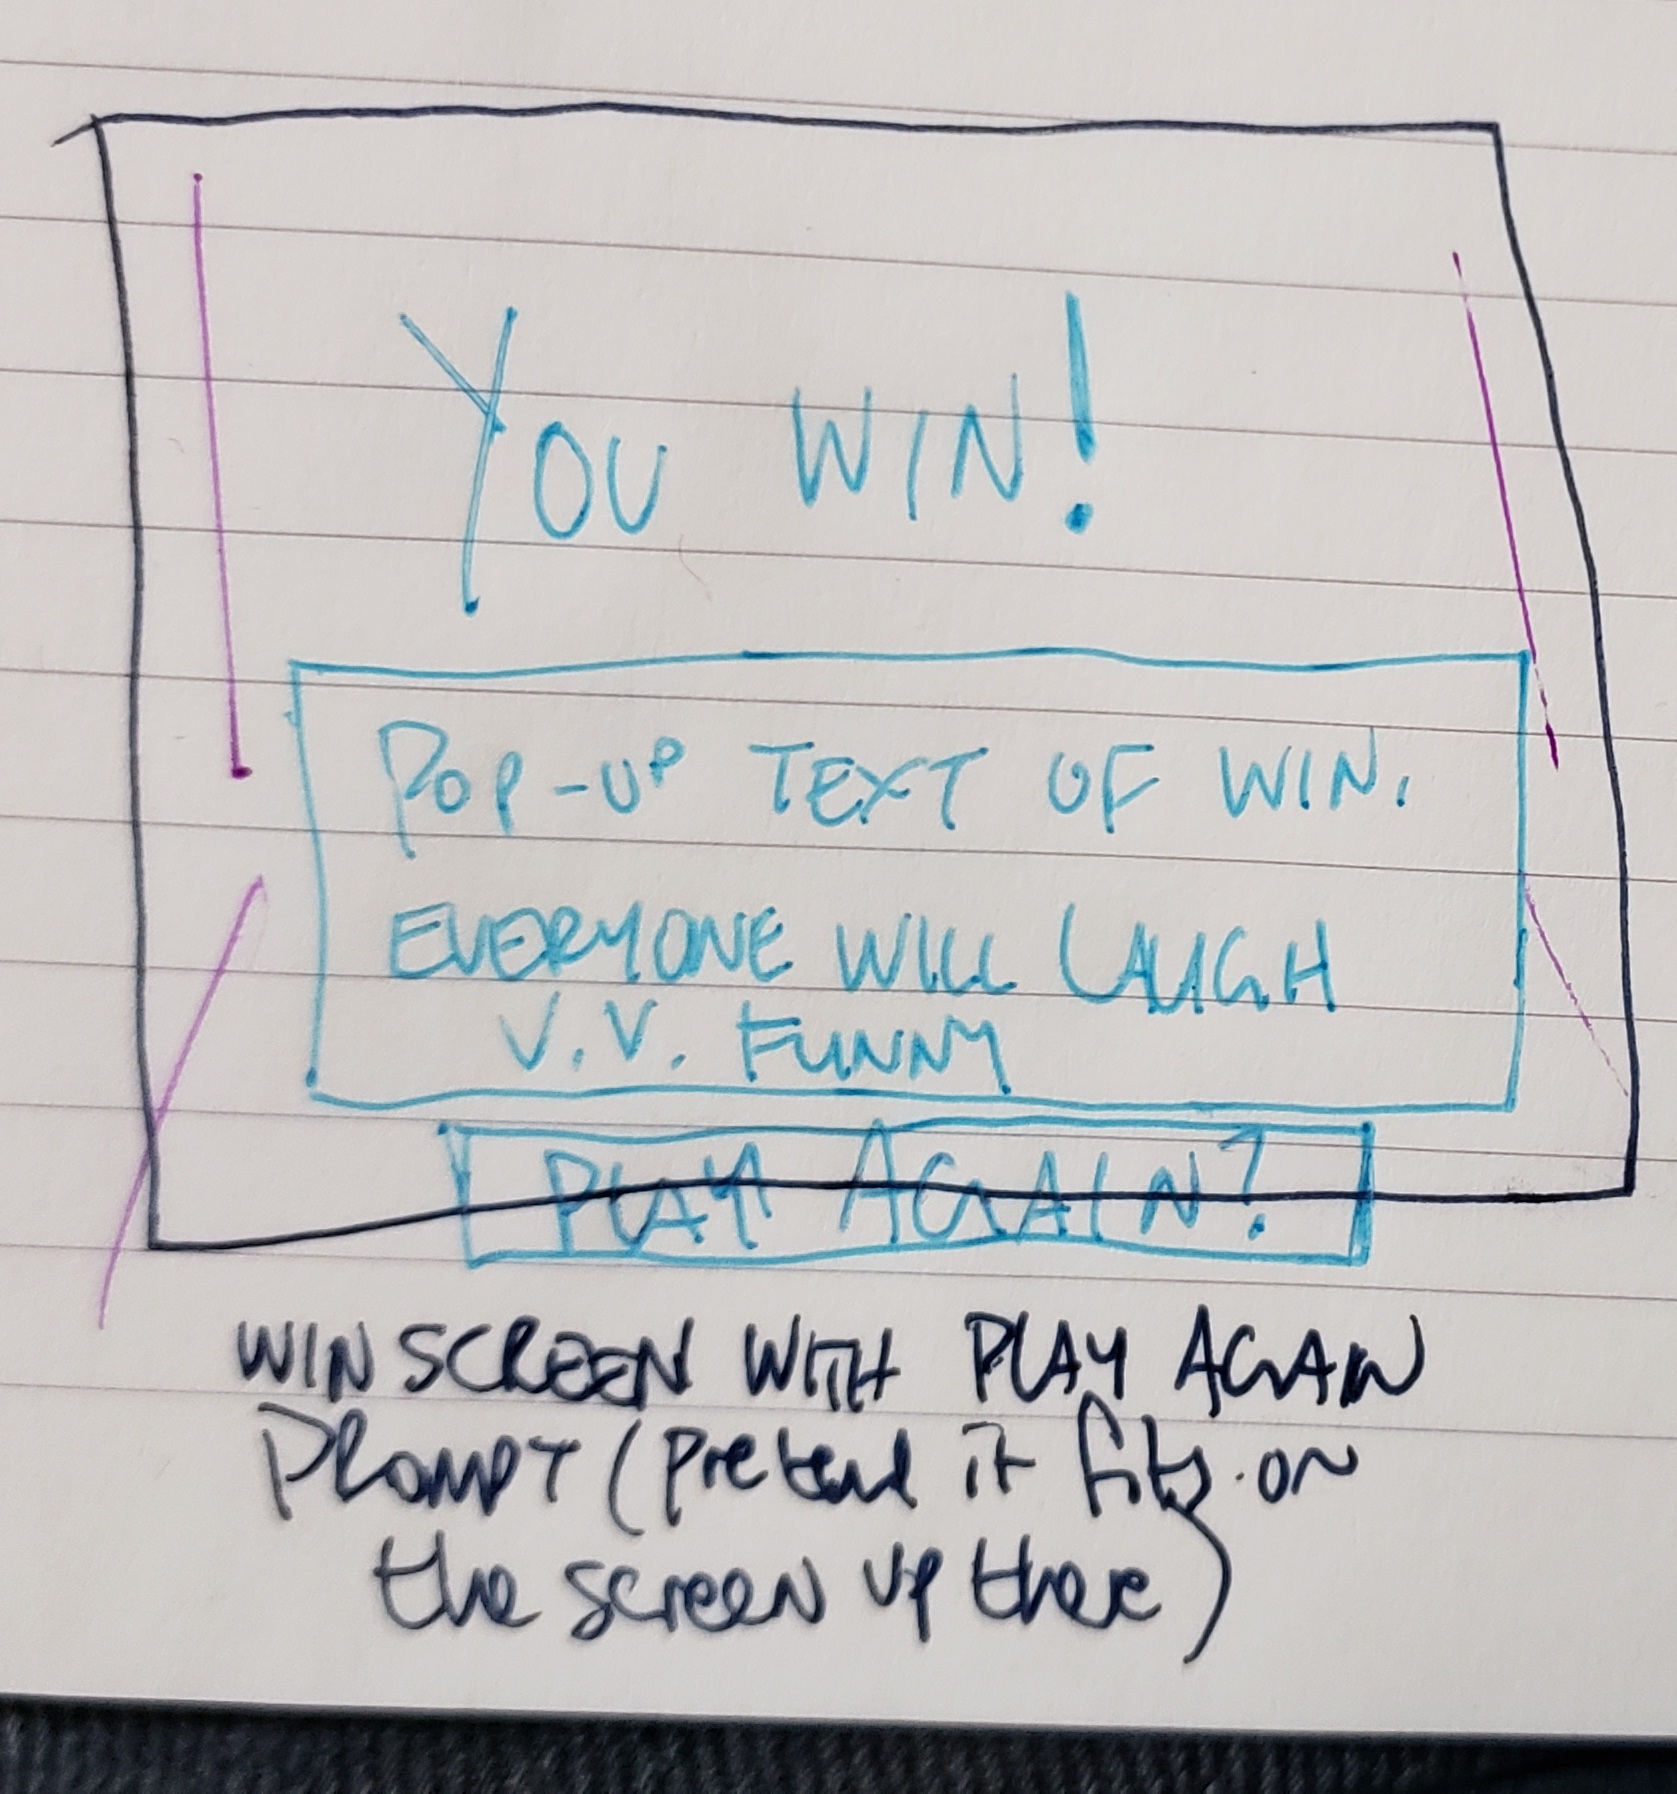 YOU WIN!
POP-UP TEXT OF WIN.
EVERYONE WILL LAUGH
V.V. FUNNY
PLAY AGAIN?
WIN SCREEN WITH PLAY AGAIN
PROMPT (pretend it fits on
the screen up there)